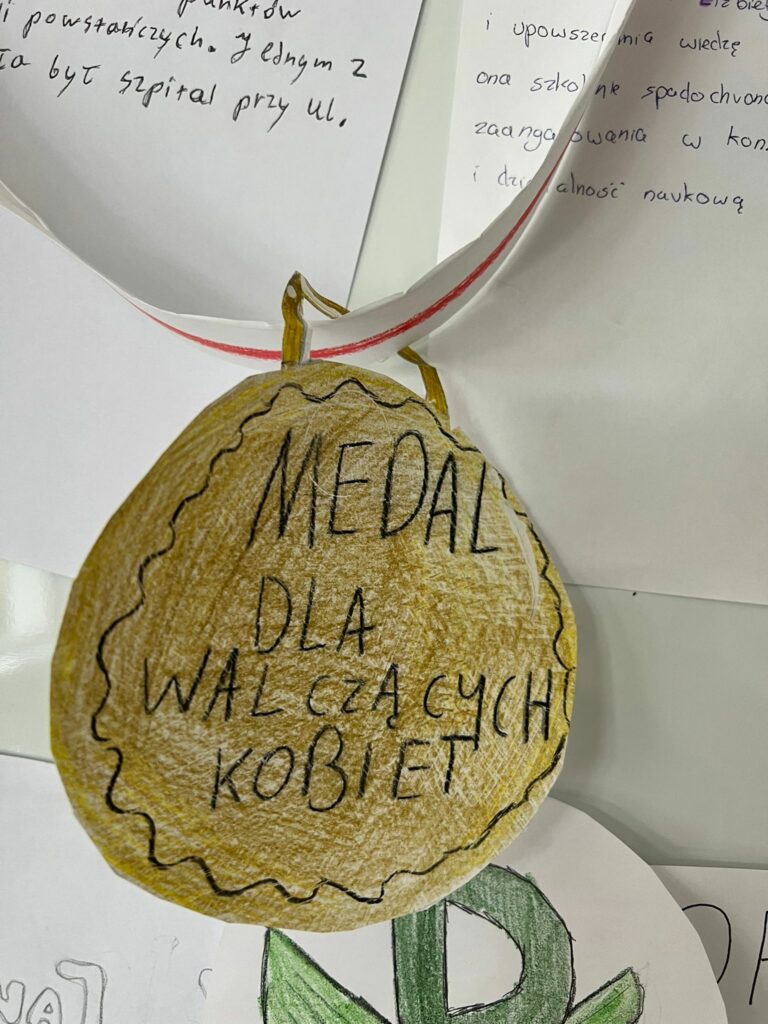 punktów
i powstańczych. Jednym z
był szpital przy ul.
i upowszer mia wiedzę
ona szkol nie spadochrono
zaanga owania w kon
i dzi alność naukową
MEDAL
DLA
WALCZĄCYCH
KOBIET
P